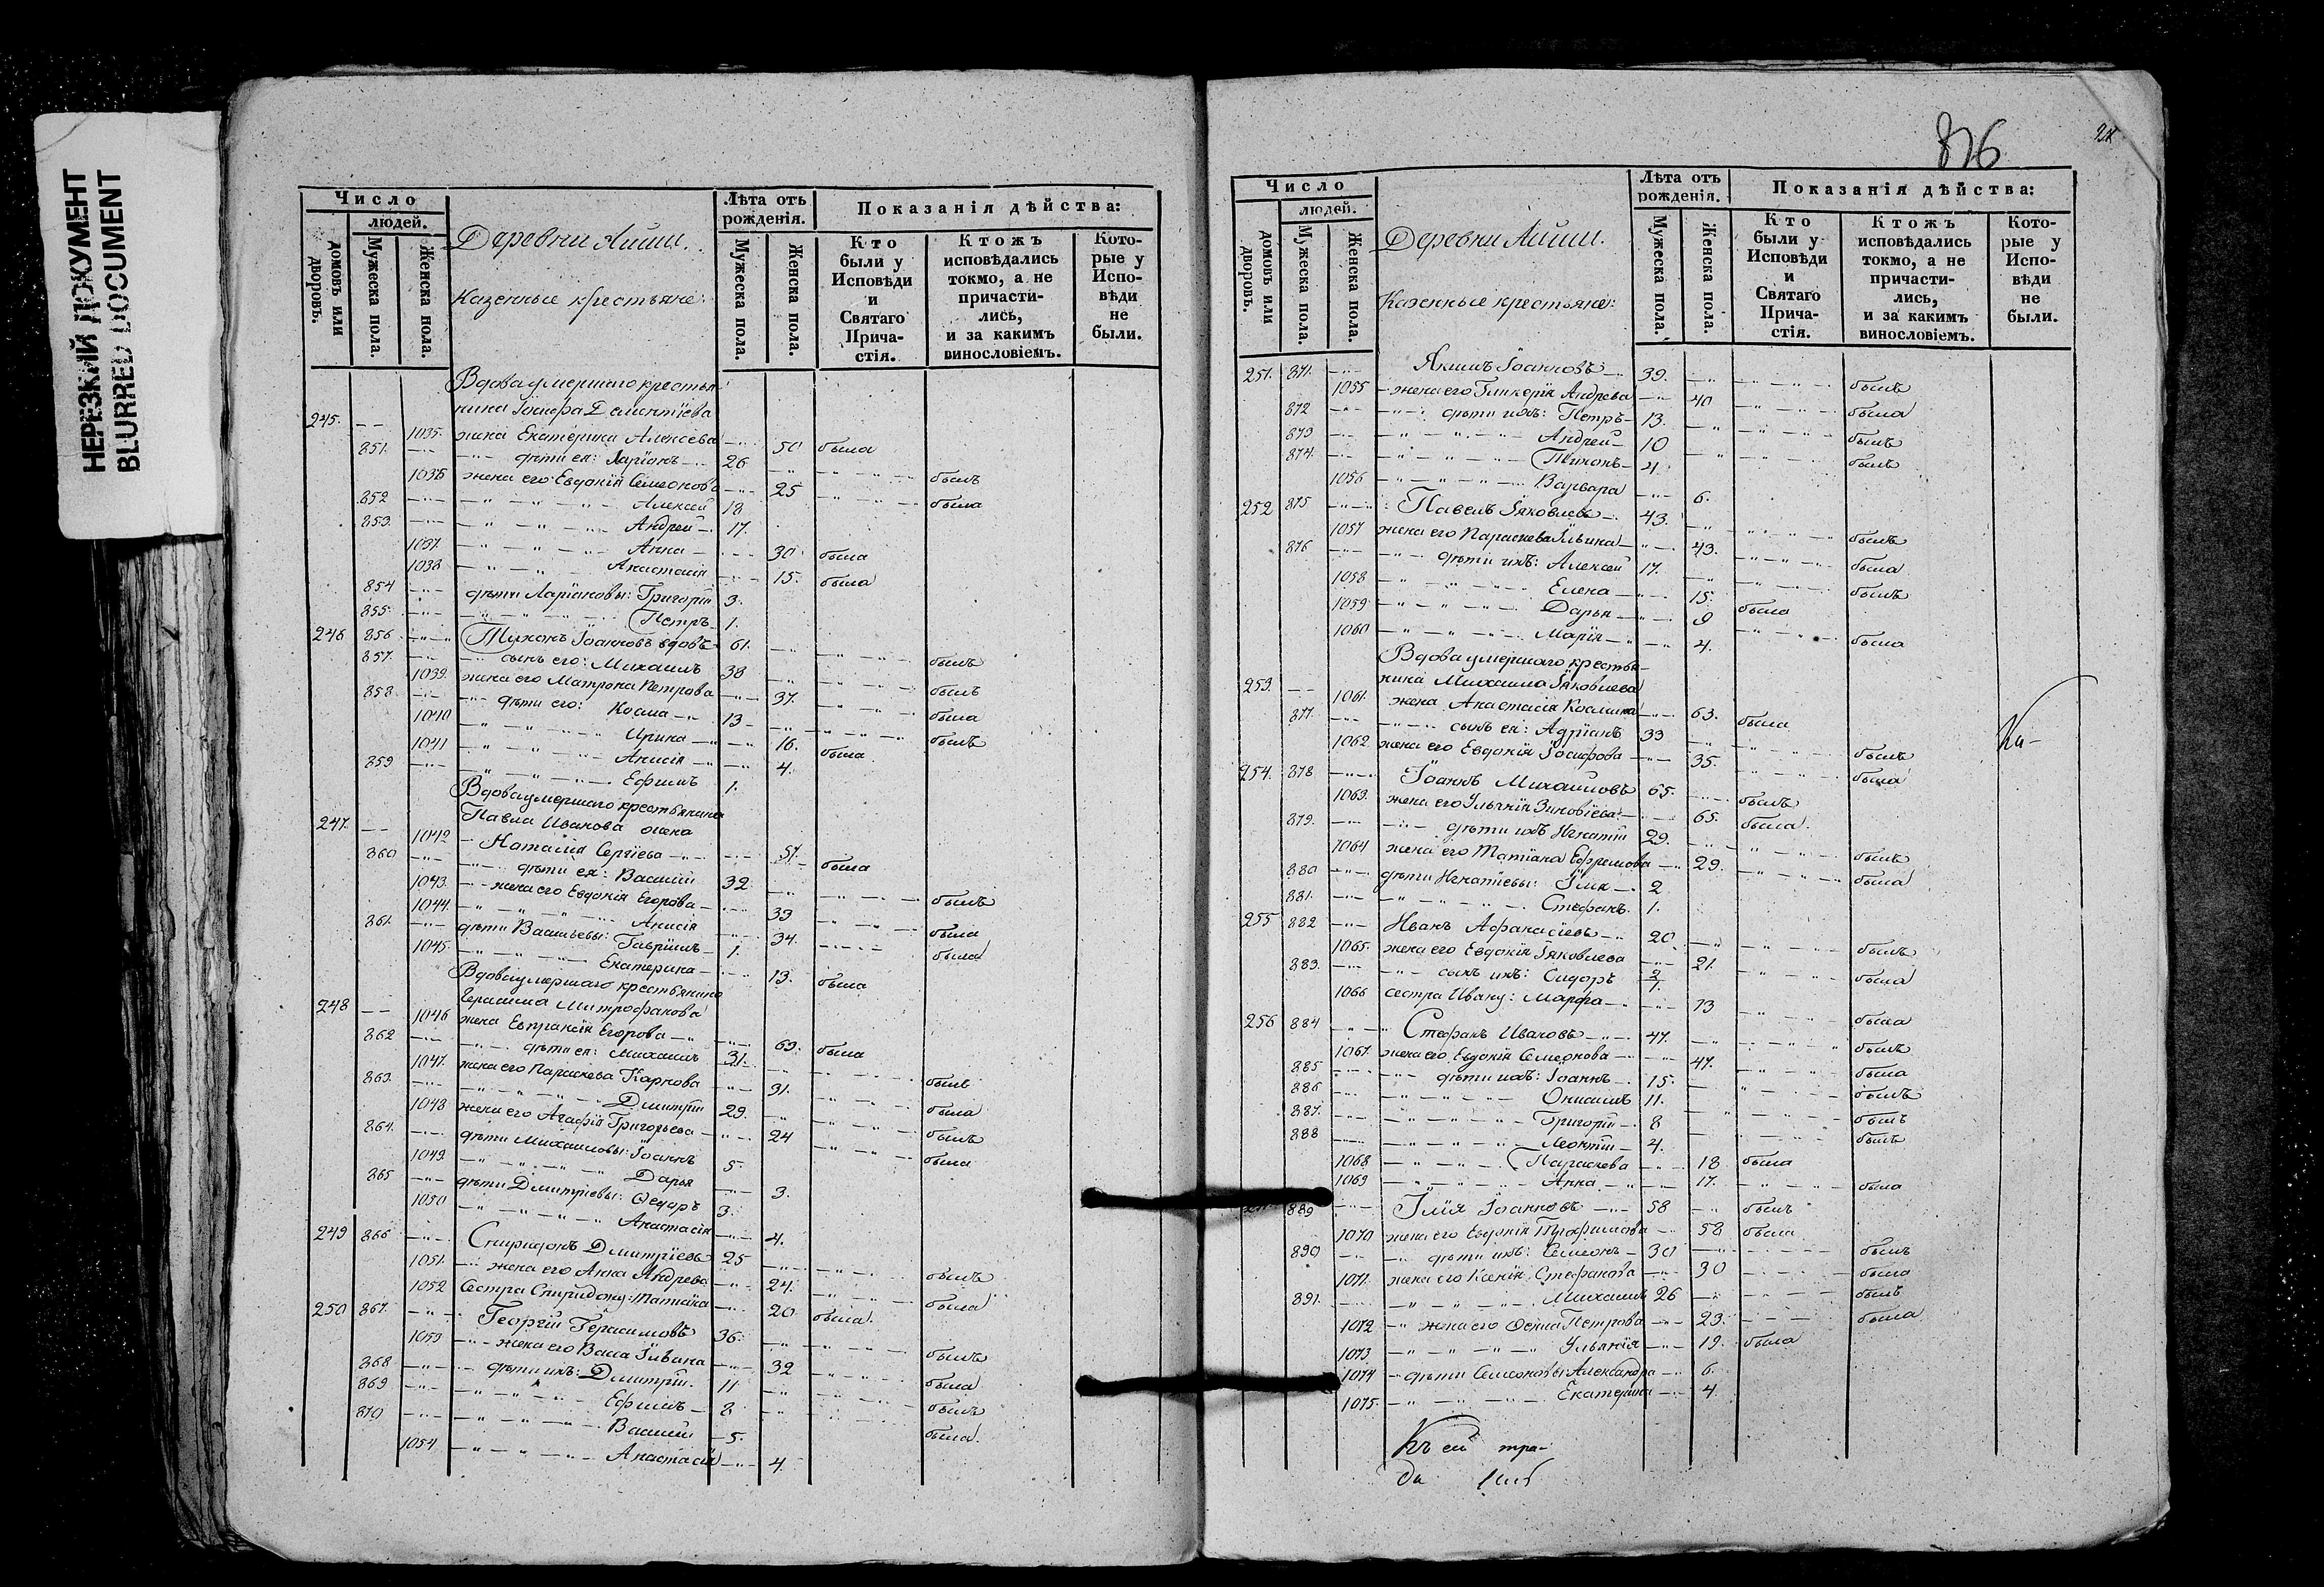 НЕРЕЗКИЙ ДОКУМЕНТ
BLURRED DOCUMENT
Число
людей.
домовъ или дворовъ.
Мужеска пола.
Женска пола.
Деревни
Казенные крестьяне:
Лѣта отъ рожденія.
Мужеска пола.
Женска пола.
Показанія дѣйства:
Кто были у Исповѣди и Святаго Прича- стія.
Ктожъ исповѣдались токмо, а не причасти- лись, и за какимъ винословіемъ.
Кото- рые у Испо- вѣди не были.
Вдова умершаго крестья-
нина Іосифа Дементіева
245. 1035. жена Екатерина Алексѣева 50 была
851. дѣти ея: Ларіонъ 26 былъ
1036 жена его Евдокія Семенова 25 была
852 Алексѣй 18
853. Андрей 17.
1037. Анна 30 была
1038 Анастасія 15. была
854 дѣти Ларіоновы: Григорій 3.
855. Петръ 1.
246 856 Тихонъ Іоанновъ вдовъ 61. былъ
857. сынъ его: Михаилъ 38 былъ
1039. жена его Матрона Петрова 37. была
858. дѣти его: Косма 13 былъ
1040 Ирина 16. была
1041 Анисія 4.
859 Ефимъ 1.
Вдова умершаго крестьянина
Павла Иванова жена
247. 1042 Наталія Сергіева 57. была
860 дѣти ея: Василій 32 былъ
1043. жена его Евдокія Егорова 33 была
1044. Анисія 34. была
861. дѣти Васильевы: Гавріилъ 1.
1045. Екатерина 13. была
Вдова умершаго крестьянина
Герасима Митрофанова
248 1046 жена Евпраксія Егорова 63. была
862 дѣти ея: Михаилъ 31. былъ
1047. жена его Параскева Карпова 31. была
863. Дмитрій 29. былъ
1048 жена его Агафія Григорьева 24 была
864. дѣти Михаиловы: Іоаннъ 5.
1049. Дарья 3.
865 дѣти Дмитріевы: Ѳедоръ 3.
1050 Анастасія 4.
249 866 Спиридонъ Дмитріевъ 25 былъ
1051. жена его Анна Андрева 24. была
1052 Сестра Спиридону: Татіана 20 была
250 867. Георгій Герасимовъ 36. былъ
1053 жена его Васса Ильина 32 была
868 дѣти ихъ: Дмитрій 11 былъ
869 Ефимъ 8 была
870 Василій 5.
1054 Анастасія 4.
876
Число
людей.
домовъ или дворовъ.
Мужеска пола.
Женска пола.
Деревни
Казенные крестьяне:
Лѣта отъ рожденія.
Мужеска пола.
Женска пола.
Показанія дѣйства:
Кто были у Исповѣди и Святаго Прича- стія.
Ктожъ исповѣдались токмо, а не причасти- лись, и за какимъ винословіемъ.
Кото- рые у Испо- вѣди не были.
251. 871. Якимъ Іоанновъ 39. былъ
1055 жена его Гликерія Андрева 40 была
872 дѣти ихъ: Петръ 13. былъ
873 Андрей 10 былъ
874. Тихонъ 4.
1056 Варвара 6.
252 875 Павелъ Іяковлевъ 43. былъ
1057 жена его Параскева Ильина 43. была
876 дѣти ихъ: Алексѣй 17. былъ
1058 Елена 15. была
1059 Дарья 9 была
1060 Марія 4.
Вдова умершаго крестья-
нина Михаила Іяковлева
253. 1061. жена Анастасія Космина 63. была
877. сынъ ея: Адріанъ 33 былъ
1062 жена его Евдокія Іосифова 35. была
254. 878 Іоаннъ Михайловъ 65. былъ
1063. жена его Ульянія Зиновіева 65. была
879. дѣти ихъ Игнатій 29. былъ
1064 жена его Татіана Ефремова 29. была
880 дѣти Игнатіевы: Илія 2
881. Стефанъ 1.
255 882 Иванъ Афанасіевъ 20 былъ
1065. жена его Евдокія Іяковлева 21. была
883. сынъ ихъ: Сидоръ
1066 сестра Ивану: Марфа 13 была
256 884 Стефанъ Ивановъ 47. былъ
1067. жена его Евдокія Семенова 47. была
885 дѣти ихъ: Іоаннъ 15. былъ
886 Онисимъ 11. былъ
887. Григорій 8 былъ
888 Леонтій 4.
1068 Параскева 18 была
1069 Анна 17. была
889 Илія Іоанновъ 58 былъ
1070 жена его Евдокія Трофимова 58 была
890 дѣти ихъ: Семенъ 30 былъ
1071. жена его Ксенія Стефанова 30 была
891. Михаилъ 26 былъ
1072 жена его Ѳекла Петрова 23. была
1073 Ульянія 19. была
1074 дѣти Семеновы: Александра 6.
1075. Екатерина 4.